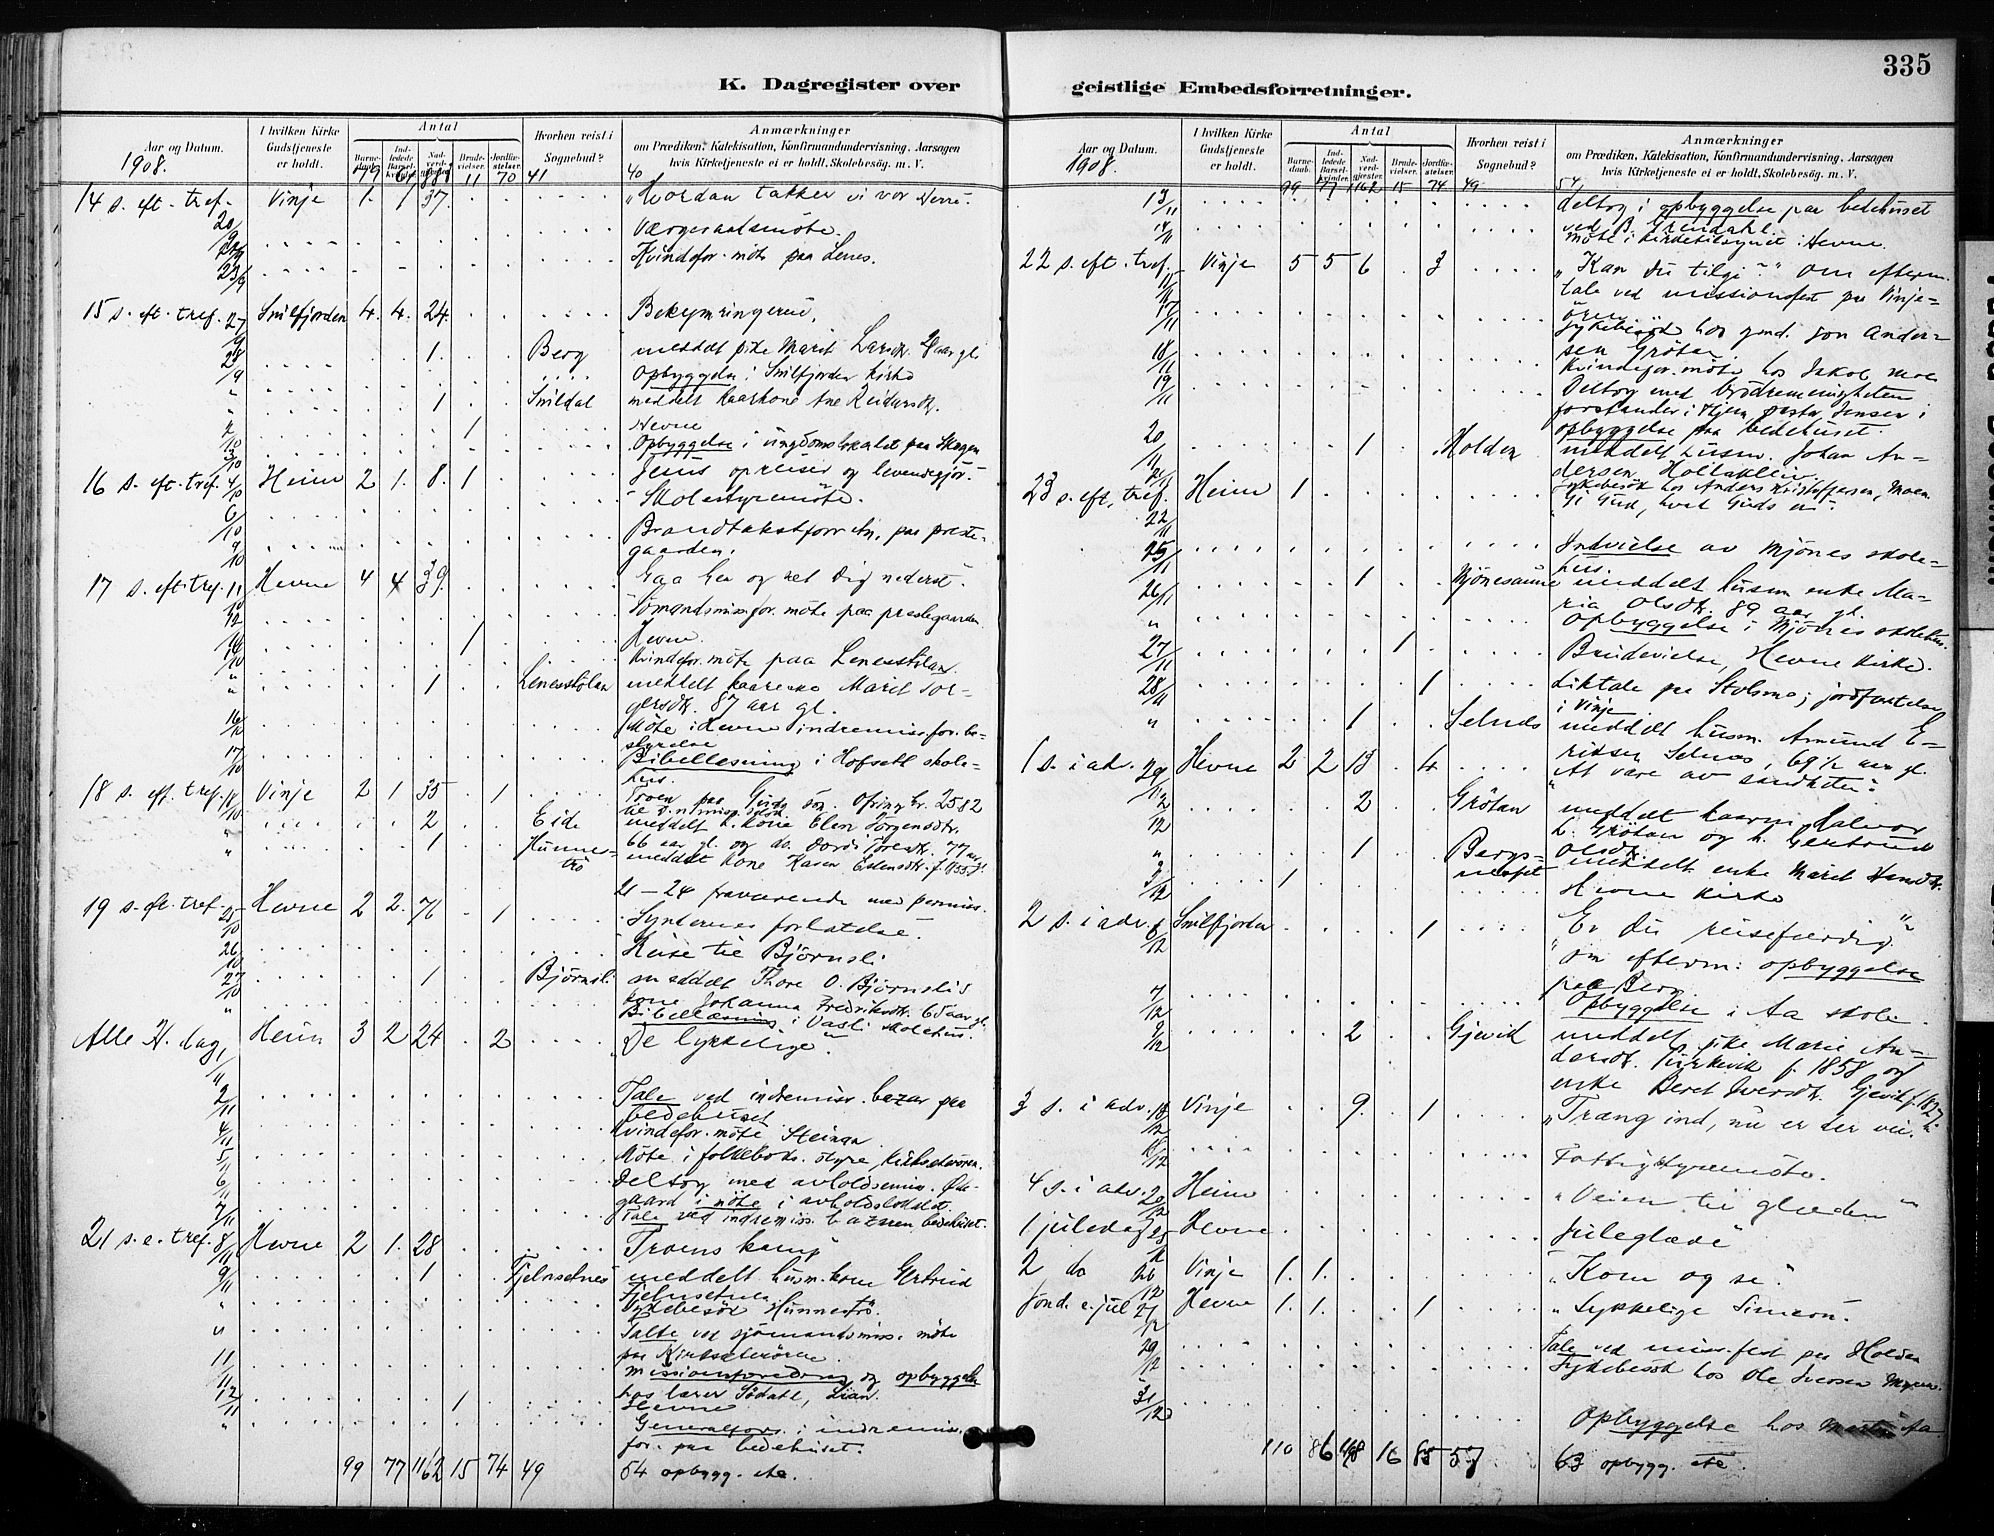 335
K. Dagregister over geistlige Embedsforretninger.
Aar og Datum.
1908.
I hvilken Kirke Gudstjeneste er holdt.
Antal
Barnedaab.
Indledede Barselkvinder.
Nadverdgjester.
Brudevielser.
Jordfæstelser.
Hvorhen reist i Sognebud?
Anmærkninger
om Prædiken, Katekisation, Konfirmandundervisning, Aarsagen
hvis Kirketjeneste ei er holdt, Skolebesøg. m. V.
11 70 41 40
14 s. eft. tref. 20/9 Vinje 1 1 37 "Hvordan takker vi vor Herre"
Værgeraadsmöte.
Kvindefor. möte paa Lenes.
15 s. eft. tref. 27/9 Snilfjorden 4. 4. 24. Bekymringerne.
28/9 1. Berg meddelt pike Marit Larsdt.
Opbyggelse i Snilfjorden Kirke
" 1 Snildal meddelt kaarkone Ane Reidarsdt.
2/10 1 Hevne
3/10 Opbyggelse i ungdomslokalet paa Skagen
16 s. eft. tref. 4/10 Heim 2 1. 8. 1 Jesus opreiser og levendegjör.
6/10 Skolestyremöte.
9/10 Brandtakstforretn. paa prestegaarden.
17 s. eft. tref. 11/10 Hevne 4 4 39. Gaa hen og set dig nederst
12/10 Sömandsmissfor. möte paa prestegaarden
14/10 1 Hevne.
Kvindefor. möte paa Lenesstölan
" 1 Lenesstölan meddelt kaarenke Marit Torgersdt. 87 aar gl.
16/10 Möte i Hevne indremissfor. bestyrelse
17/10 Bibellesning i Hofsett skolehus.
18 s. eft. tref. 18/10 Vinje 2 1 35 1 Troen paa Guds sön. Ofring kr. 25.82
" 2 Eide meddelt h. kone Elen Jörgensdtr.
66 aar gl. og 77 aar
" 1 Hunneströ meddelt kone Karen Estensdt. f. 1835
21 – 24 fraværende med permiss.
19 s. eft. tref. 25/10 Hevne 2 2. 76 1 Syndernes forlatelse.
26/10 Reise til Björnsli
27/10 1 Björnsli meddelt Thore O. Björnslis
kone Johanna Fredriksdt. 65 aar gl.
" Bibellæsning i Vasli skolehus.
Alle H. dag 1/11 Heim 3 2 24 2 "De lykkelige"
2/11 Tale ved indremiss. bazar paa bedehuset
4/11 Kvindefor. möte Steinan
5/11 Möte i folkebibl. styre, Kirksæterören.
6/11 Deltog med avholdsemiss. Ödegaard i möte i avholdslokalet.
7/11 Tale ved indremiss. bazaren bedehuset.
21 s. e. tref. 8/11 Hevne 2 1. 28 Troens kamp
9/11 1 Fjelnsetnes meddelt husm. kone Gertrud Fjelnsetnes
" Sykebesök Hunneströ
" Talte ved sjömandsmiss. möte paa Kirksæterören
11/11 Missionsforedrag og opbyggelse hos lærer Södahl, Lian.
12/11 1 Hevne
" Generalfors. i indremiss. for. paa bedehuset.
99 77 1162 15 74 49 54 opbygg. etc.
Aar og Datum.
1908.
I hvilken Kirke Gudstjeneste er holdt.
Antal
Barnedaab.
Indledede Barselkvinder.
Nadverdgjester.
Brudevielser.
Jordfæstelser.
Hvorhen reist i Sognebud?
Anmærkninger
om Prædiken, Katekisation, Konfirmandundervisning, Aarsagen
hvis Kirketjeneste ei er holdt, Skolebesøg. m. V.
99 77 1162 15 74 49 54
13/11 deltog i opbyggelse paa bedehuset
ved B. Grendahl.
14/11 möte i kirketilsynet i Hevne.
22 s. eft. tref. 15/11 Vinje 5 5 6 3 "Kan du tilgi?" Om efterm.
tale ved missionsfest paa Vinjeören
17/11 Sykebesök hos Andersen Grötan
18/11 Kvindefor. möte hos Jakob Moe
19/11 Deltog med brödremenighetens
forstander i Hjem, pastor Jensen i
opbyggelse paa bedehuset.
20/11 1 Holden meddelt husm. Johan Andersen Holla
21/11 Sykebesök hos Anders Kristoffersen, Moen
23 s. eft. tref. 22/11 Heim 1 "Gi Gud, hvad Guds er".
25/11 Indvielse av Mjönes skolehus.
26/11 1 Mjönesaune meddelt husm. enke Maria Olsdt. 89 aar gl.
" Opbyggelse i Mjönes skolehus.
27/11 1 Brudevielse, Hevne Kirke.
28/11 1 Liktale paa Stolsmo; jordfæstelse i Vinje
" 1 Selnes meddelt husm. Amund Eriksen Selnes, 69½ aar gl.
1 s. i adv. 29/11 Hevne 2 2 13 4 "At være av sandheten".
2/12 2 Grötan meddelt kaarm. Halvor
L. Grötan og h. Gjertrud Olsdt.
" 1 Bergs- meddelt enke Marit Hansdt.
3/12 1 Hevne Kirke
2 s. i adv. 6/12 Snilfjorden 1 "Er du reisefærdig"
om efterm. opbyggelse paa Berg
7/12 Opbyggelse i Aa skole.
9/12 2 Gjevik meddelt pike Marie Andersdt. f. 1858 og
enke Beret Iversdt. Gjevik f. 1827
3 s. i adv. 13/12 Vinje 9. 1 "Træng ind, nu er der vei."
Fattigstyremöte.
4 s. i adv. 20/12 Heim "Veien til glæden"
1 juledag 25/12 Hevne Juleglæde
2 do 26/12 Vinje 1. 1. "Kom og se".
Sönd. e. jul 27/12 Hevne 1. 1. 1 "Lykkelige Simeon".
29/12 Tale ved miss. fest paa Holden
Sykebesök hos Ole Iversen
31/12 Opbyggelse hos Aa
110 86 16 85 57 63 opbygg. etc.